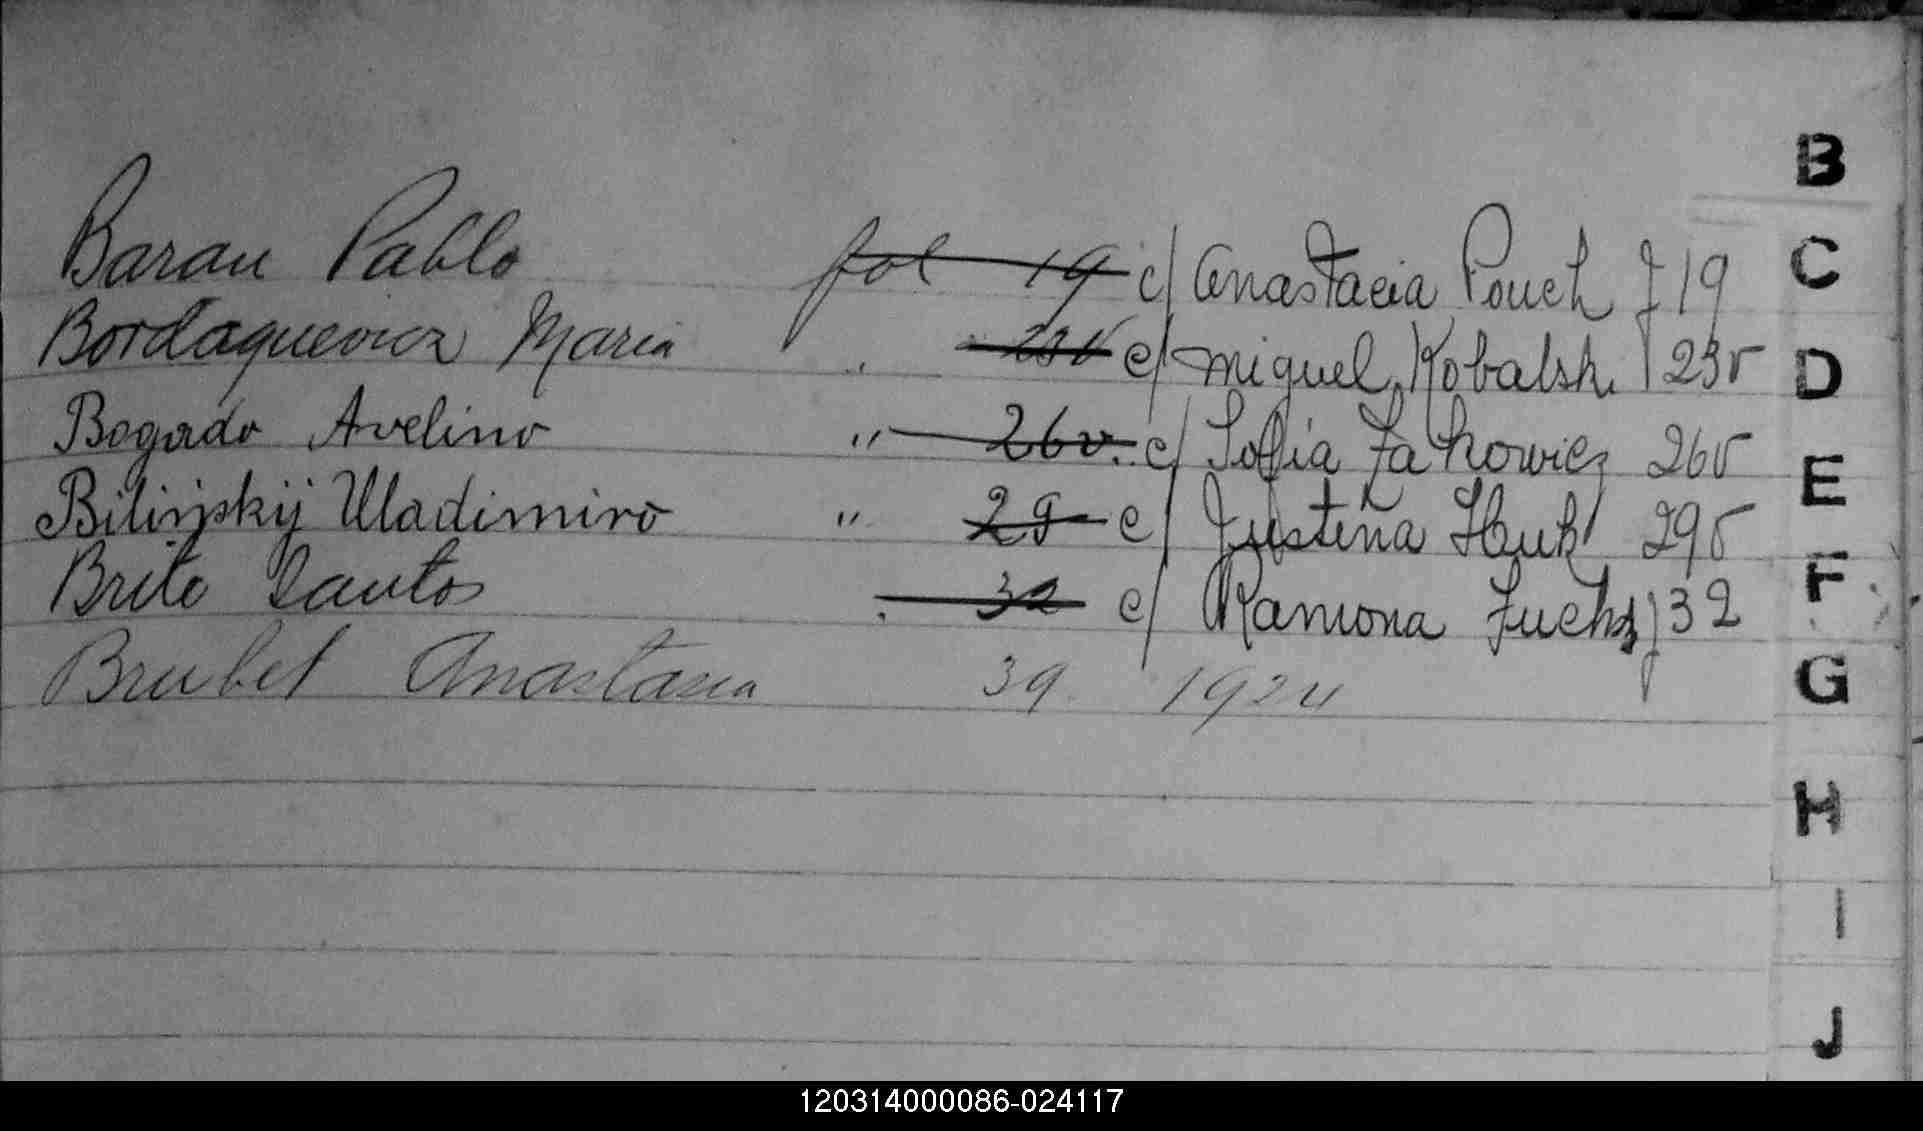 B
Baran Pablo fol 19 c/ Anastacia Pouch f 19
C
Bordaquevicz Maria 23v c/ Miguel Kobalski f 23v
D
Bogado Avelino " 26v. c/ Sofia Zakowicz 26v
E
Bilinskij Uladimiro " 29 c/ Justina Huk 29v
F
Brite Santos " 32 c/ Ramona Fuchs f 32
G
Brubel Anastasia 39 1924
H
I
J
120314000086-024117